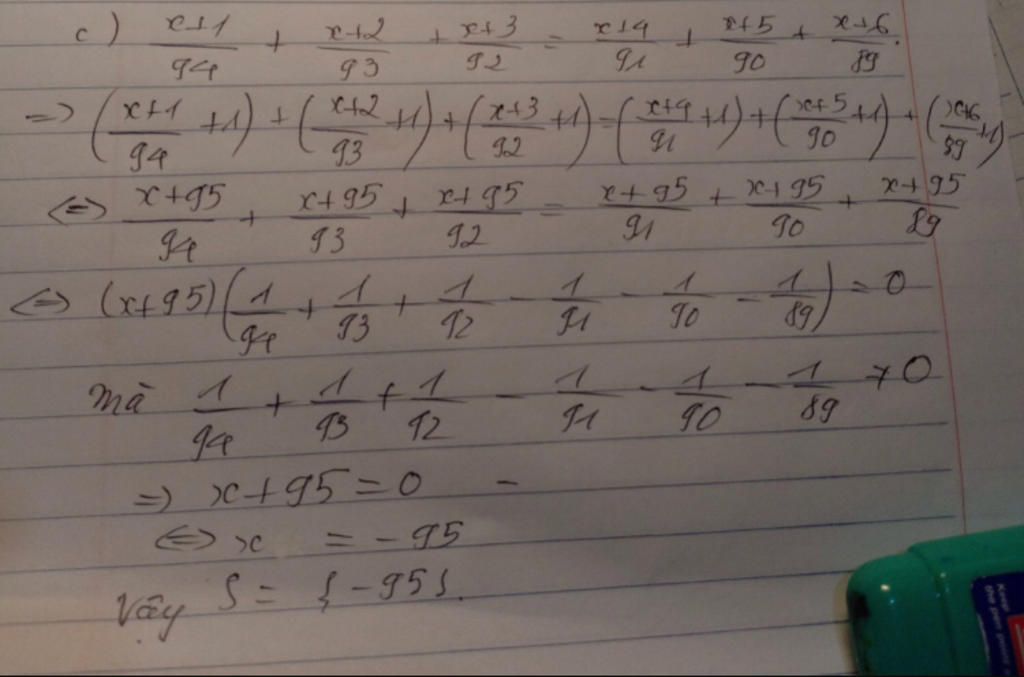 c) x+1/94 + x+2/93 + x+3/92 = x+4/91 + x+5/90 + x+6/89.
=> (x+1/94 +1) + (x+2/93 +1) + (x+3/92 +1) = (x+4/91 +1) + (x+5/90 +1) + (x+6/89 +1)
<=> x+95/94 + x+95/93 + x+95/92 = x+95/91 + x+95/90 + x+95/89
<=> (x+95)(1/94 + 1/93 + 1/92 - 1/91 - 1/90 - 1/89) = 0
mà 1/94 + 1/93 + 1/92 - 1/91 - 1/90 - 1/89 ≠ 0
=> x+95 = 0 -
<=> x = -95
Vậy S = {-95}.
Keep
the pen